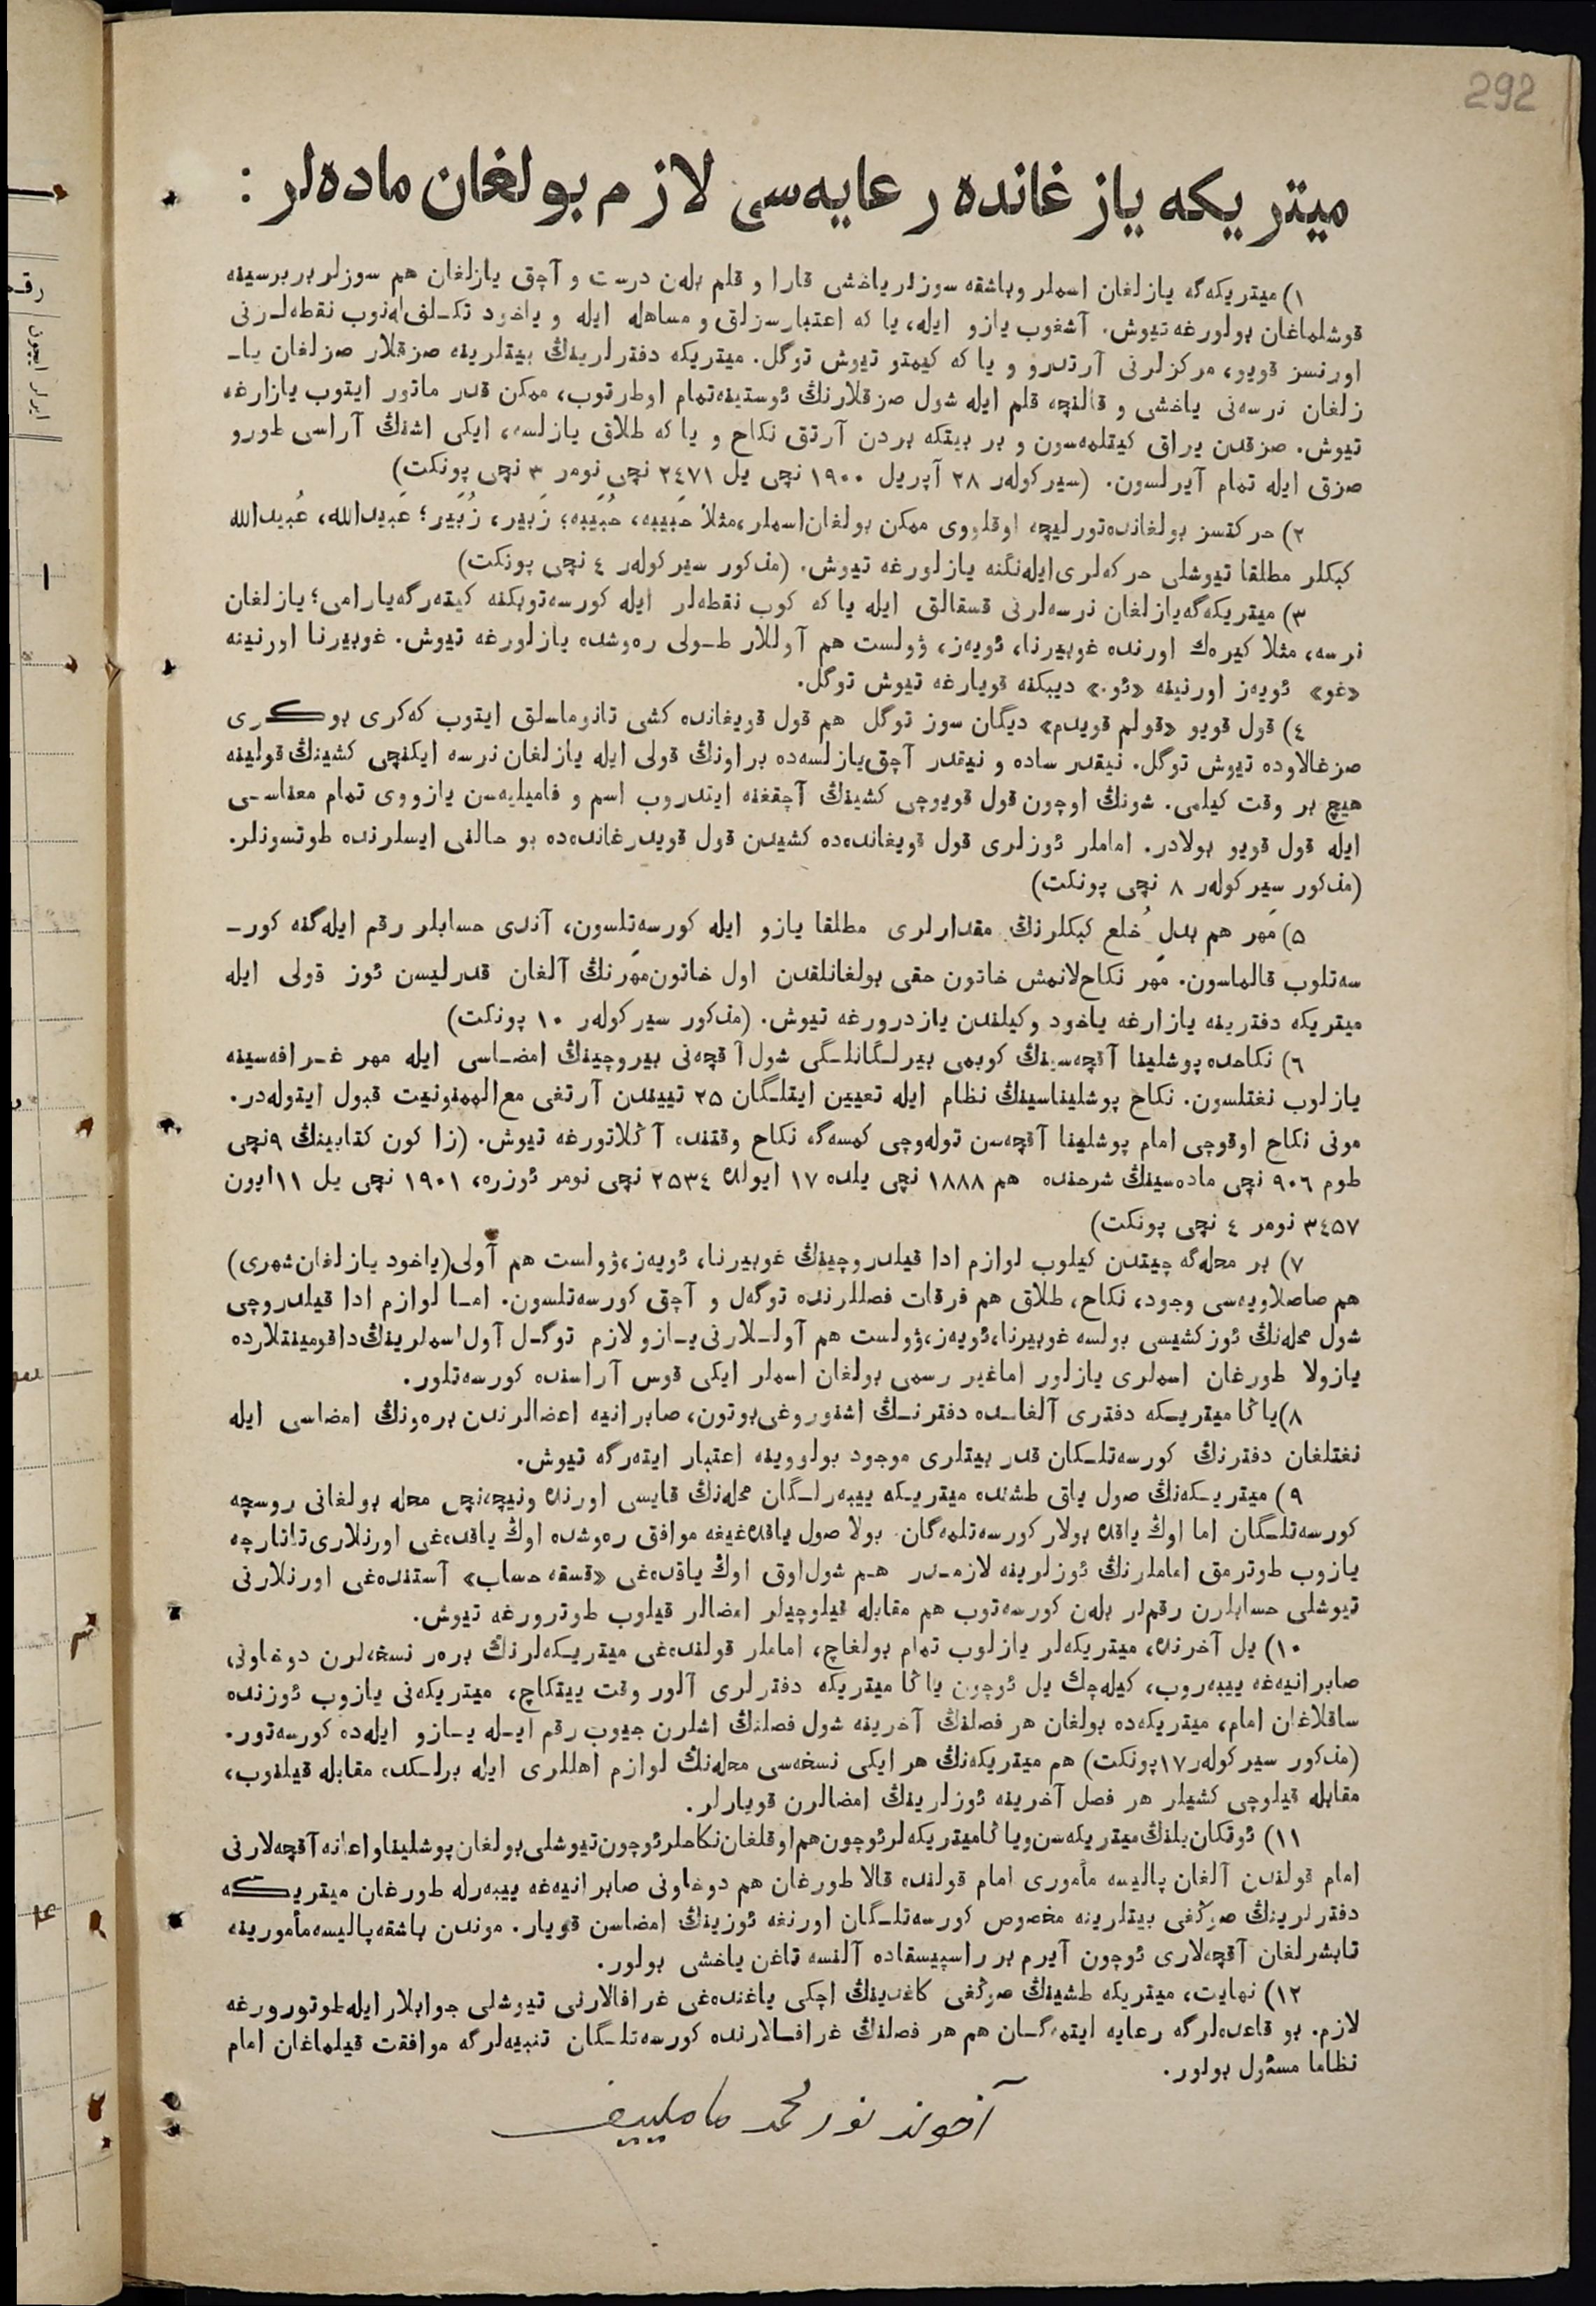 292
میتریکه یازغانده رعایه‌سی لازم بولغان ماده‌لر :
۱) میتریکه‌گه یازلغان اسملر وباشقه سوزلر یاخشی قارا و قلم بله‌ن درست و آچق یازلغان هم سوزلر بربرسینه
قوشلماغان بولورغه تیوش. آشغوب یازو ایله، یا که اعتبارسزلق و مساهله ایله و یاخود تکـلف‌له‌نوب نقطه‌لـرنی
اورنسز قویو، مرکزلرنی آرتدرو و یا که کیمتو تیوش توگل. میتریکه دفترلرینڭ بیتلرینه صزقلار صزلغان یا-
زلغان نرسه‌نی یاخشی و قالنچه قلم ایله شول صزقلارنڭ ئوستینه‌تمام اوطرتوب، ممکن قدر ماتور ایتوب یازارغه
تیوش. صزقدن یراق کیتلمه‌سون و بر بیتکه بردن آرتق نکاح و یا که طلاق یازلسه، ایکی اشنڭ آراسی طورو
صزق ایله تمام آیرلسون. (سیرکوله‌ر ۲۸ آپریل ۱۹۰۰ نچی یل ۲٤۷۱ نچی نومر ۳ نچی پونکت)
۲) حرکتسز بولغانده‌تورلیچه اوقلووی ممکن بولغان‌اسملر،مثلا حَبیبه، حُبَیبه؛ زَبیر، زُبَیر؛ عَبیدالله، عُبیدالله
کبکلر مطلقا تیوشلی حرکه‌لری‌ایله‌نگنه یازلورغه تیوش. (مذکور سیرکوله‌ر ٤ نچی پونکت)
۳) میتریکه‌گه‌یازلغان نرسه‌لرنی قسقالق ایله یا که کوب نقطه‌لر ایله کورسه‌توبکنه کیته‌رگه‌یارامی؛ یازلغان
نرسه، مثلا کیره‌ك اورنده غوبیرنا، ئویه‌ز، ۋولست هم آوللار طـولی ره‌وشده یازلورغه تیوش. غوبیرنا اورنینه
«غو» ئویه‌ز اورنینه «ئو.» دیبکنه قویارغه تیوش توگل.
٤) قول قویو «قولم قویدم» دیگان سوز توگل هم قول قویغانده کشی تانوماسلق ایتوب که‌کری بوکـری
صزغالاوده تیوش توگل. نیقدر ساده و نیقدر آچق‌یازلسه‌ده براونڭ قولی ایله یازلغان نرسه ایکنچی کشینڭ قولینه
هیچ بر وقت کیلمی. شونڭ اوچون قول قویوچی کشینڭ آچقغنه ایتدروب اسم و فامیلیه‌سن یازووی تمام معناسـی
ایله قول قویو بولادر. اماملر ئوزلری قول قویغانده‌ده کشیدن قول قویدرغانده‌ده بو حالنی ایسلرنده طوتسونلر.
(مذکور سیرکوله‌ر ۸ نچی پونکت)
۵) مَهر هم بدل خُلع کبکلرنڭ مقدارلری مطلقا یازو ایله کورسه‌تلسون، آندی حسابلر رقم ایله‌گنه کور-
سه‌تلوب قالماسون. مَهر نکاح‌لانمش خاتون حقی بولغانلقدن اول خاتون‌مَهرنڭ آلغان قدرلیسن ئوز قولی ایله
میتریکه دفترینه یازارغه یاخود وکیلندن یازدرورغه تیوش. (مذکور سیرکوله‌ر ۱۰ پونکت)
٦) نکاحده پوشلینا آقچه‌سینڭ کوبمی بیرلـگانلـگی شول‌آقچه‌نی بیروچینڭ امضـاسی ایله مهر غـرافه‌سینه
یازلوب نغتلسون. نکاح پوشلیناسینڭ نظام ایله تعیین ایتلـگان ۲۵ تییندن آرتغی مع‌الممنونیت قبول ایتوله‌در.
مونی نکاح اوقوچی امام پوشلینا آقچه‌سن توله‌وچی کمسه‌گه نکاح وقتنده آڭلاتورغه تیوش. (زا کون کتابینڭ ۹نچی
طوم ۹۰٦ نچی ماده‌سینڭ شرحنده هم ۱۸۸۸ نچی یلده ۱۷ ایولده ۲۵۳٤ نچی نومر ئوزره، ۱۹۰۱ نچی یل ۱۱ایون
۳٤۵۷ نومر ٤ نچی پونکت)
۷) بر محله‌گه چیتدن کیلوب لوازم ادا قیلدروچینڭ غوبیرنا، ئویه‌ز،ۋولست هم آولی(یاخود یازلغان‌شهری)
هم صاصلاویه‌سی وجود، نکاح، طلاق هم فرقات فصللرنده توگه‌ل و آچق کورسه‌تلسون. امـا لوازم ادا قیلدروچی
شول محله‌نڭ ئوزکشیسی بولسه غوبیرنا،ئویه‌ز،ۋولست هم آولـلارنی‌یـازو لازم توگـل آول‌اسملرینڭ‌داقومینتلارده
یازولا طورغان اسملری یازلور اماغیر رسمی بولغان اسملر ایکی قوس آراسنده کورسه‌تلور.
۸)یاڭا میتریـکه دفتری آلغانـده دفترنـڭ اشنوروغی‌بوتون، صابرانیه اعضالرندن بره‌ونڭ امضاسی ایله
نغتلغان دفترنڭ کورسه‌تلـکان قدر بیتلری موجود بولووینه اعتبار ایته‌رگه تیوش.
۹) میتریـکه‌نڭ صول یاق طشنده میتریـکه ییبه‌رلـگان محله‌نڭ قایسی اورنده ونیچه‌نچی محله بولغانی روسچه
کورسه‌تلـگان اما اوڭ یاقده بولار کورسه‌تلمه‌گان. بولا صول یاقده‌غیغه موافق ره‌وشده اوڭ یاقده‌غی اورنلاری‌تاتارچه
یازوب طوترمق اماملرنڭ ئوزلرینه لازمـدر هـم شول‌اوق اوڭ یاقده‌غی «قسقه حساب» آستنده‌غی اورنلارنی
تیوشلی حسابلرن رقملر بله‌ن کورسه‌توب هم مقابله قیلوچیلر امضالر قیلوب طوترورغه تیوش.
۱۰) یل آخرنده، میتریکه‌لر یازلوب تمام بولغاچ، اماملر قولنده‌غی میتریـکه‌لرنڭ بره‌ر نسخه‌لرن دوخاونی
صابرانیه‌غه ییبه‌روب، کیله‌چك یل ئوچون یاڭا میتریکه دفترلری آلور وقت ییتکاچ، میتریکه‌نی یازوب ئوزنده
ساقلاغان امام، میتریکه‌ده بولغان هر فصلنڭ آخرینه شول فصلنڭ اشلرن جیوب رقم ایـله یـازو ایله‌ده کورسه‌تور.
(مذکور سیرکوله‌ر۱۷پونکت) هم میتریکه‌نڭ هر ایکی نسخه‌سی محله‌نڭ لوازم اهللری ایله برلـکده مقابله قیلنوب،
مقابله قیلوچی کشیلر هر فصل آخرینه ئوزلرینڭ امضالرن قویارلر.
۱۱) ئوتکان‌یلنڭ‌میتریکه‌سن‌ویاڭامیتریکه‌لرئوچون‌هم‌اوقلغان‌نکاحلرئوچون‌تیوشلی‌بولغان‌پوشلیناواعانه‌آقچه‌لارنی
امام قولندن آلغان پالیسه مأموری امام قولنده قالا طورغان هم دوخاونی صابرانیه‌غه ییبه‌رله طورغان میتریـکه
دفترلرینڭ صوڭغی بیتلرینه مخصوص کورسه‌تلـگان اورنغه ئوزینڭ امضاسن قویار. موندن باشقه‌پالیسه‌مأمورینه
تابشرلغان آقچه‌لاری ئوچون آیرم بر راسپیسقاده آلنسه تاغن یاخشی بولور.
۱۲) نهایت، میتریکه طشینڭ صوڭغی کاغدینڭ اچکی یاغنده‌غی غرافالارنی تیوشلی جوابلار ایله‌طوتورورغه
لازم. بو قاعده‌لرگه رعایه ایتمه‌گـان هم هر فصلنڭ غرافـالارنده کورسه‌تلـگان تنبیه‌لرگه موافقت قیلماغان امام
نظاما مسئول بولور.
آخوند نورمحمد مامليیف